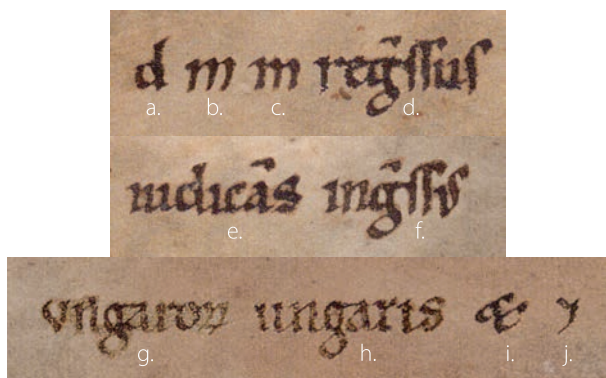 d m m reg̃ſſus
a. b. c. d.
iudicãs ing̃ſſꝰ
e. f.
vngaroꝝ ungaris
g. h. i. j.